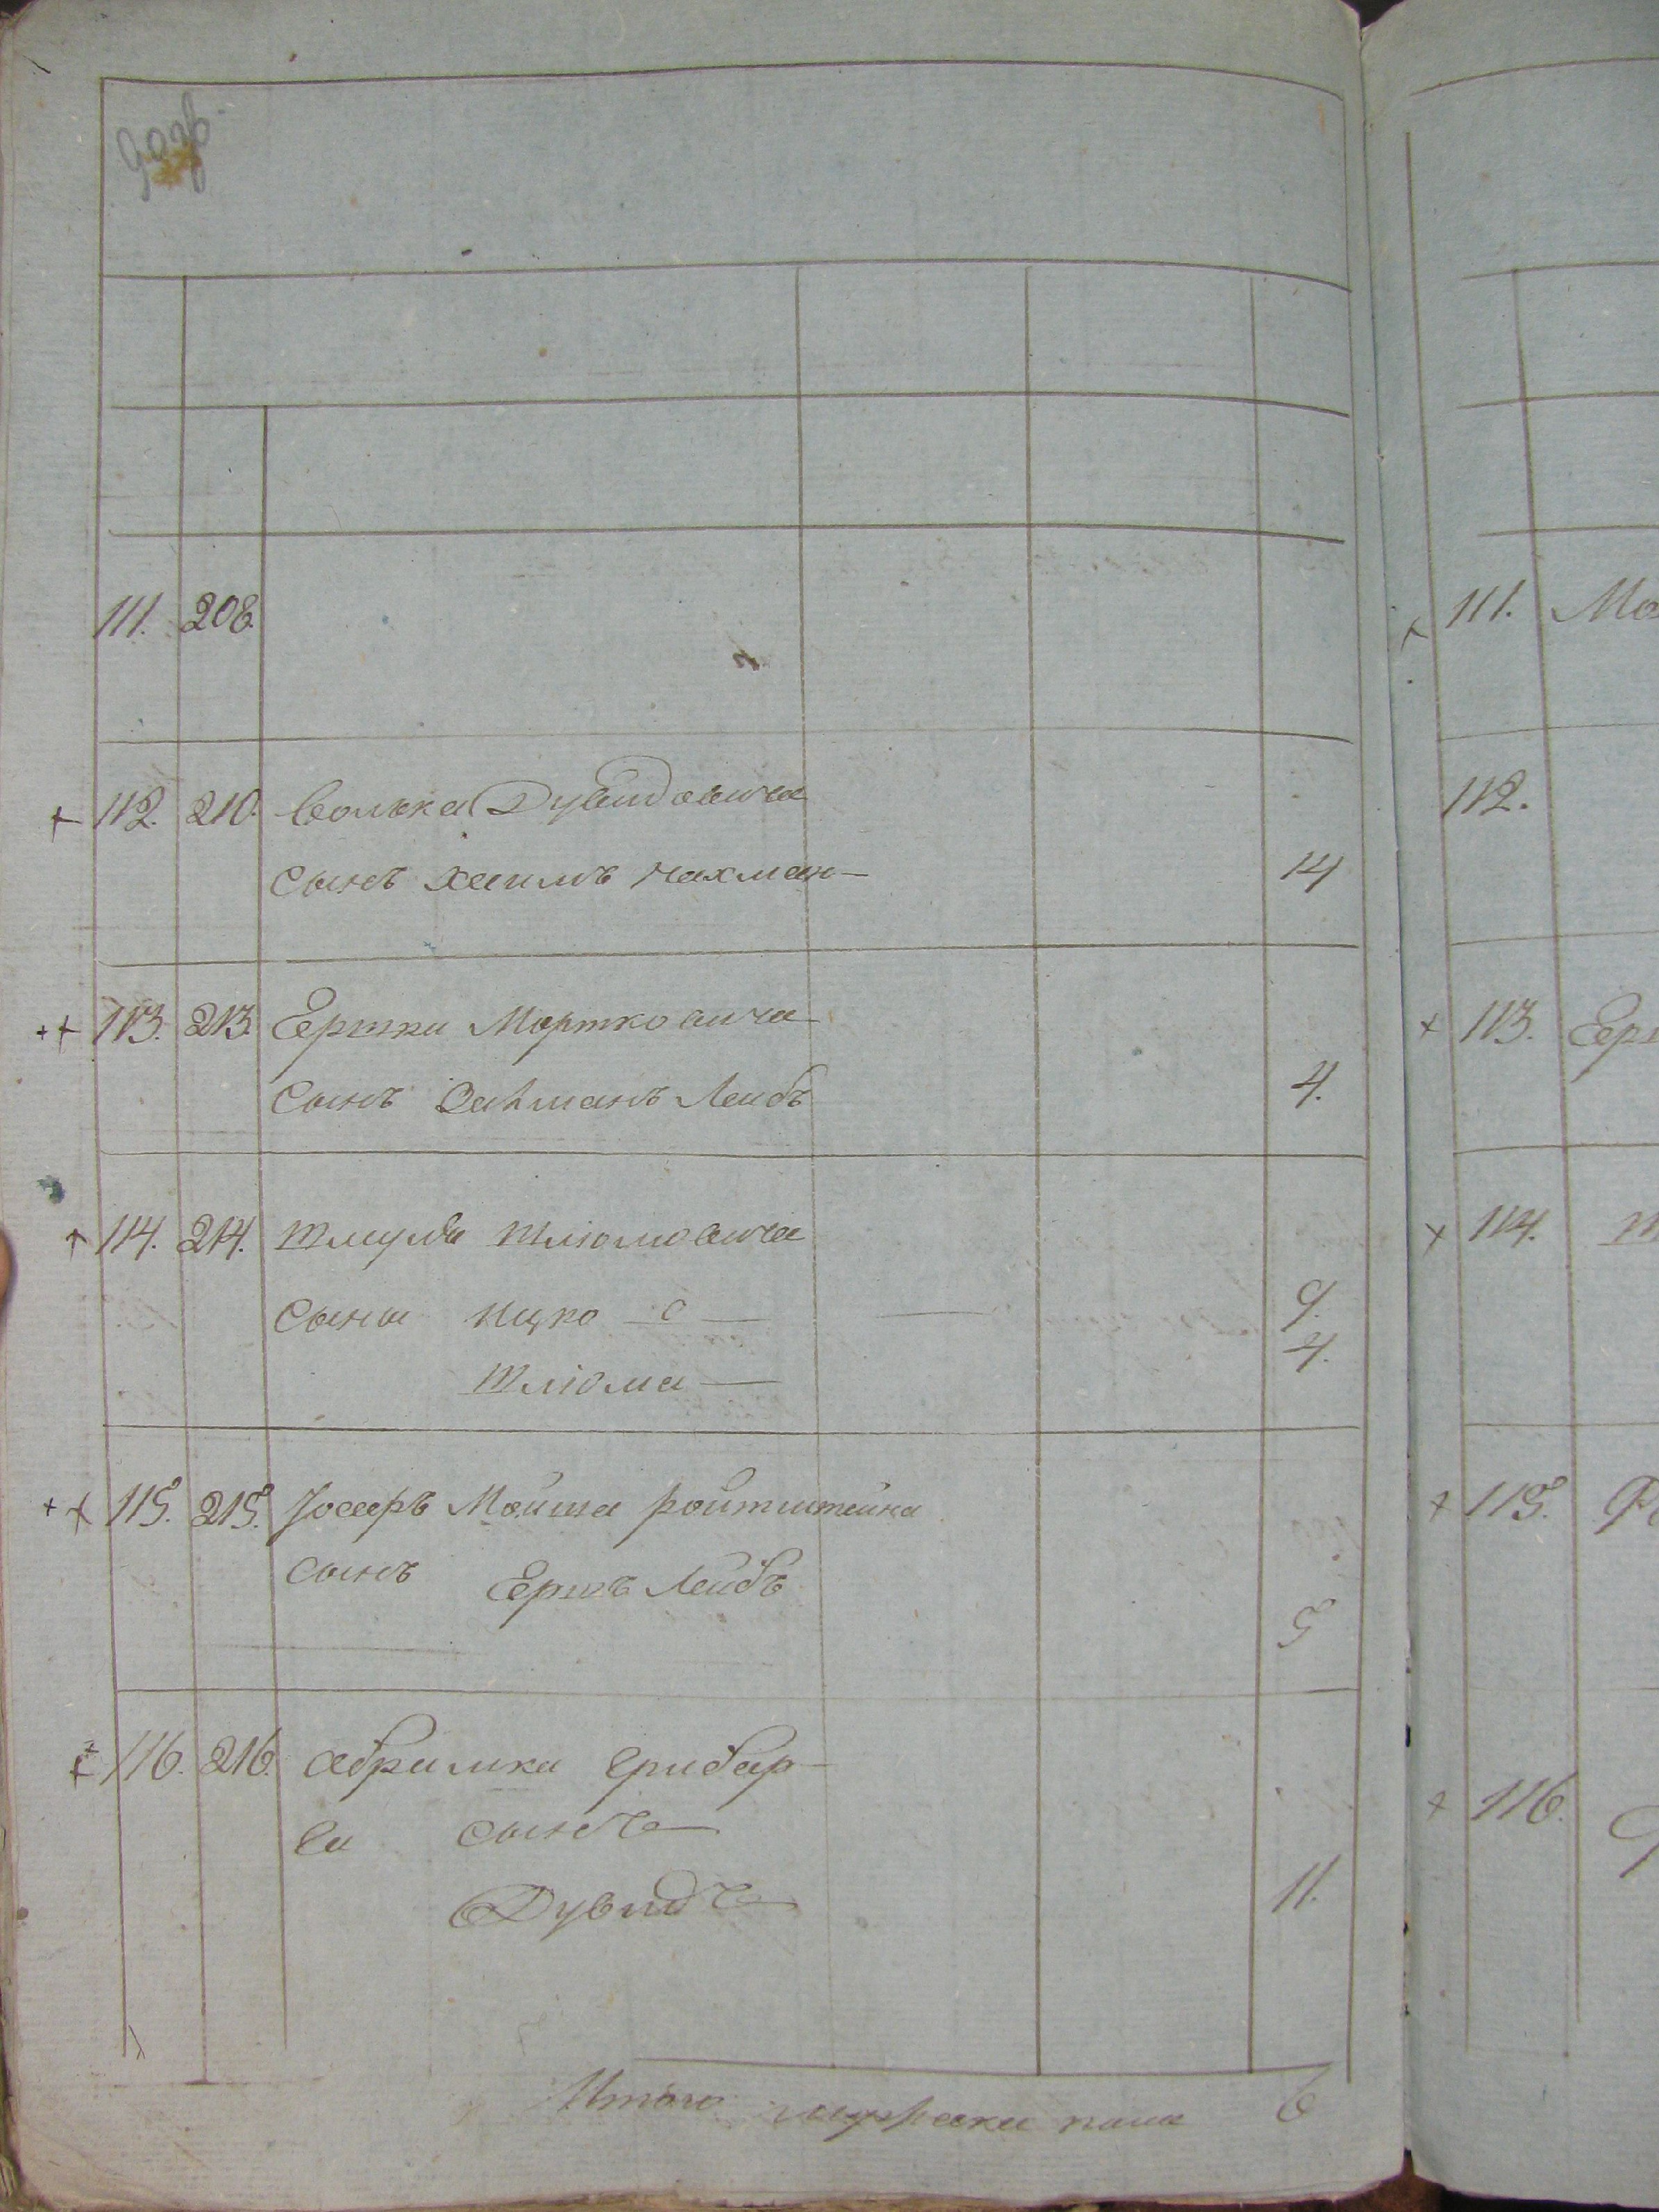 90 об
111. 208.
112. 210. Волька Дувидовича
сынъ Хаимъ Нахман— 14
113. 213. Ершки Мортковича
сынъ Залманъ Лейбъ 4.
114. 214. Шмуля Шліомовича
сыны Ицко — 9.
Шліома — 4.
115. 215. Іосееръ Мойша Ройтштейна
сынъ Ершъ Лейбъ
5
116. 216. Абрамка Грибар—
ва сынъ
Дувидъ 11.
Итого мужеска пола 6
111. Мо
112.
113. Ерш
114. Ш
115.
116.